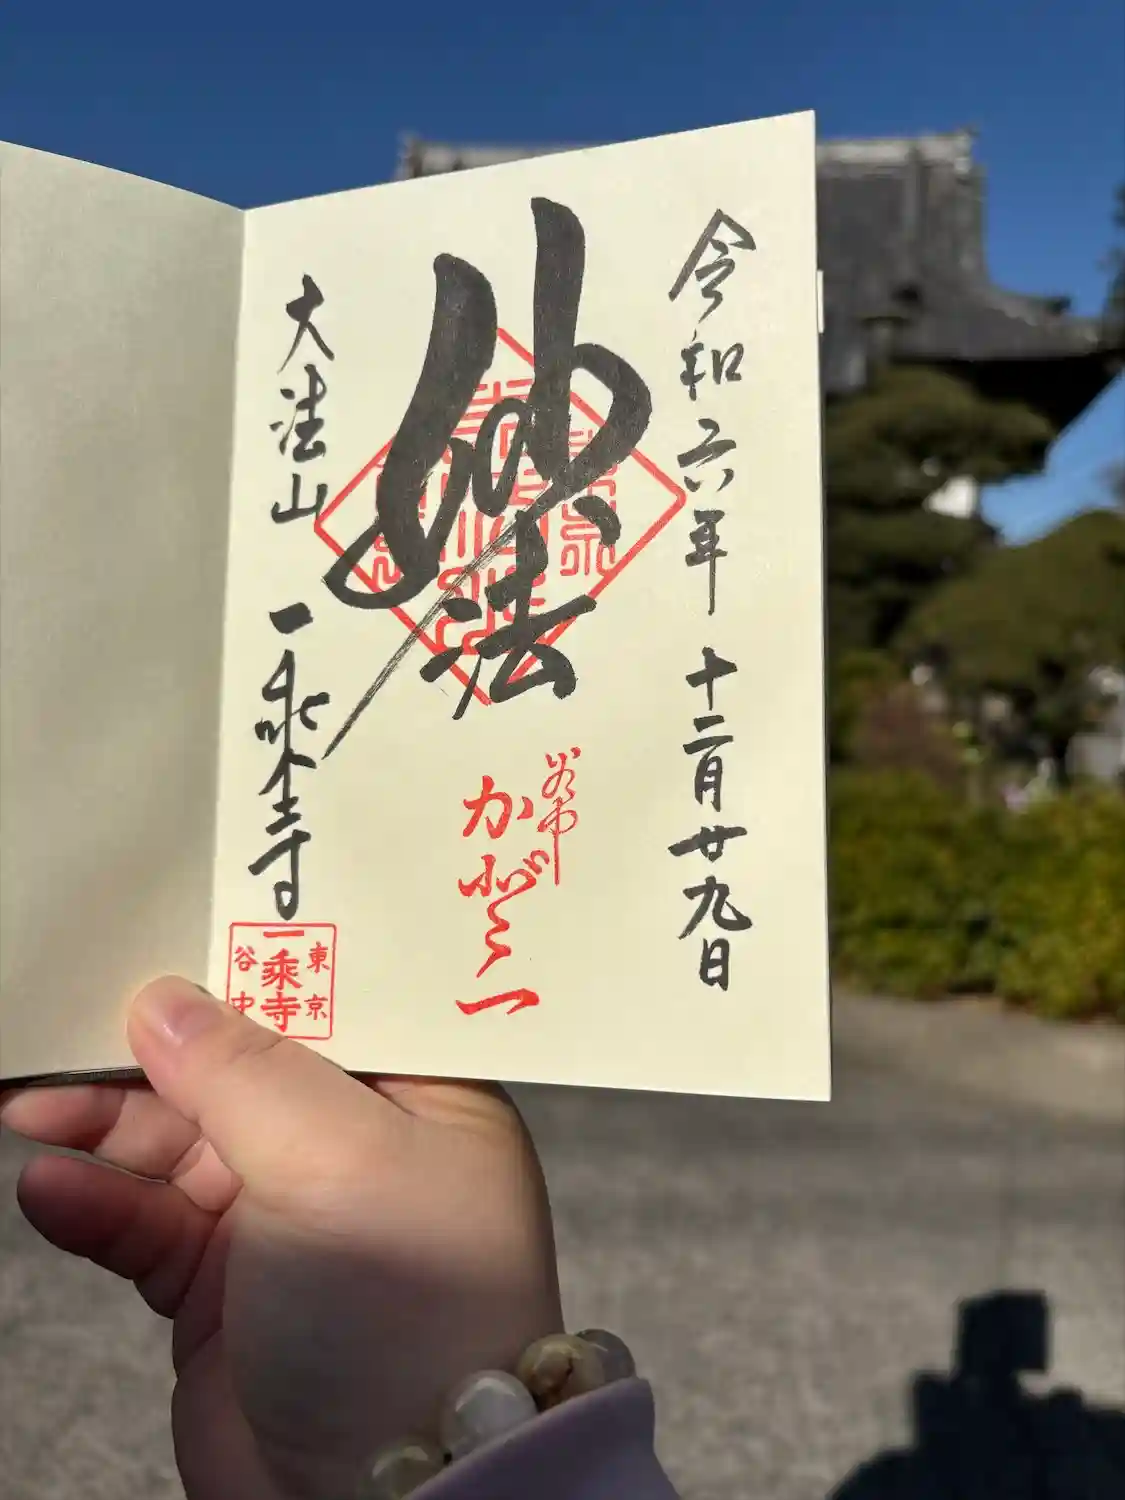 令和六年 十二月廿九日
妙法
谷中
大法山 一乗寺
東京
一乗寺
谷中